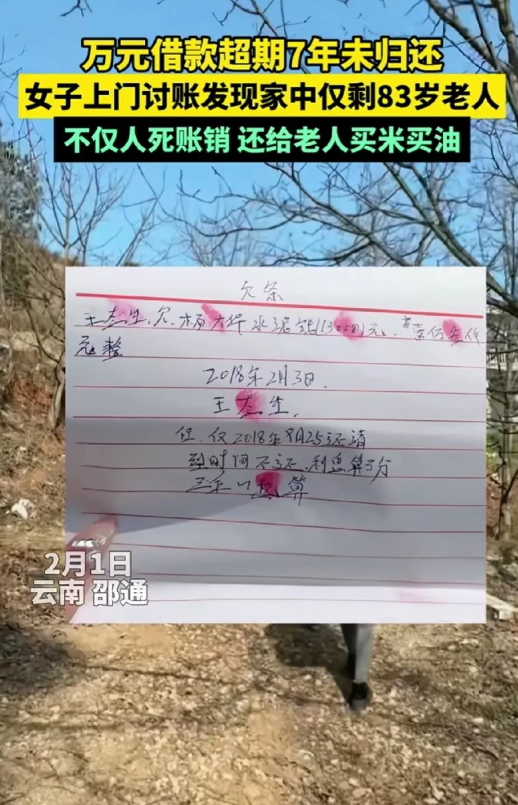 万元借款超期7年未归还
女子上门讨账发现家中仅剩83岁老人
不仅人死账销 还给老人买米买油
欠条
王 生 欠 杨 华 水泥 元
元整
2018年2月3日
王 生
2018年8月25 还清
到时间不还 利息算3分
算
2月1日
云南 邵通